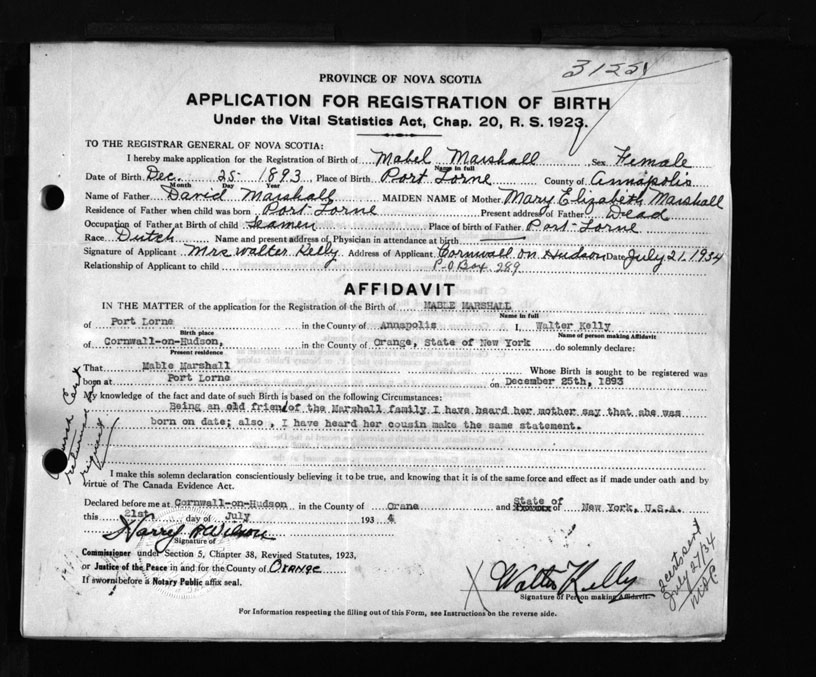 3155
PROVINCE OF NOVA SCOTIA
APPLICATION FOR REGISTRATION OF BIRTH
Under the Vital Statistics Act, Chap. 20, R. S. 1923.
TO THE REGISTRAR GENERAL OF NOVA SCOTIA:
I hereby make application for the Registration of Birth of Mabel Marshall Sex Female
Name in full
Date of Birth Dec. 25 - 1893 Place of Birth Port Lorne County of Annapolis
Month Day Year
Name of Father David Marshall MAIDEN NAME of Mother Mary Elizabeth Marshall
Residence of Father when child was born Port Lorne Present address of Father Dead
Occupation of Father at Birth of child Seamen Place of birth of Father Port Lorne
Race Dutch Name and present address of Physician in attendance at birth
Signature of Applicant Mrs Walter Kelly Address of Applicant Cornwall on Hudson Date July 21, 1934
Relationship of Applicant to child P.O Box 289
AFFIDAVIT
IN THE MATTER of the application for the Registration of the Birth of MABLE MARSHALL
Name in full
of Port Lorne in the County of Annapolis I, Walter Kelly
Birth place Name of person making Affidavit
of Cornwall-on-Hudson, in the County of Orange, State of New York do solemnly declare:
Present residence
That Mable Marshall Whose Birth is sought to be registered was
born at Port Lorne on December 25th, 1893
My knowledge of the fact and date of such Birth is based on the following Circumstances:
Being an old friend of the Marshall family I have heard her mother say that she was
born on date; also , I have heard her cousin make the same statement.
I make this solemn declaration conscientiously believing it to be true, and knowing that it is of the same force and effect as if made under oath and by
virtue of The Canada Evidence Act.
Declared before me at Cornwall-on-Hudson in the County of Orane and State of New York, U.S.A.
this 21st day of July 193 4
Harry A Wilson
Signature of
Commissioner under Section 5, Chapter 38, Revised Statutes, 1923,
or Justice of the Peace in and for the County of Orange
If sworn before a Notary Public affix seal.
X Walter Kelly
Signature of Person making Affidavit.
For Information respecting the filling out of this Form, see Instructions on the reverse side.
returned
request
sent
July 27/34